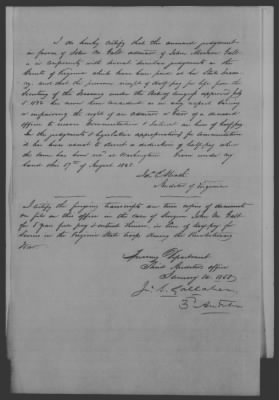 I do hereby certify that the annexed judgment
in favor of John M. Galt admr of John Minson Galt
is in conformity with sundry similar judgments in the
Courts of Virginia which have been paid at her State Treasu
ry, and that the previous receipt of half pay for life from the
Secretary of the Treasury under the act of Congress approved July
5. 1832 has never been considered as in any respect barring
or impairing the right of an administrator or heir of a deceased
officer to receive Commutation & Interest in lieu of half pay
In the judgments & legislative appropriations for Commutation
it has been usual to direct a deduction of half pay when
the same has been rec'd at Washington. Given under my
hand this 17th of August 1848.
Jas. E. Heath
Auditor of Virginia
I certify the foregoing transcripts are true copies of documents
on file in this office in the case of Surgeon John M. Galt
for 5 years full pay & interest thereon, in lieu of half pay for
service in the Virginia State troops during the Revolutionary
War.
Treasury Department
Third Auditors office
January 1858
J. S. Gallaher
3d Auditor